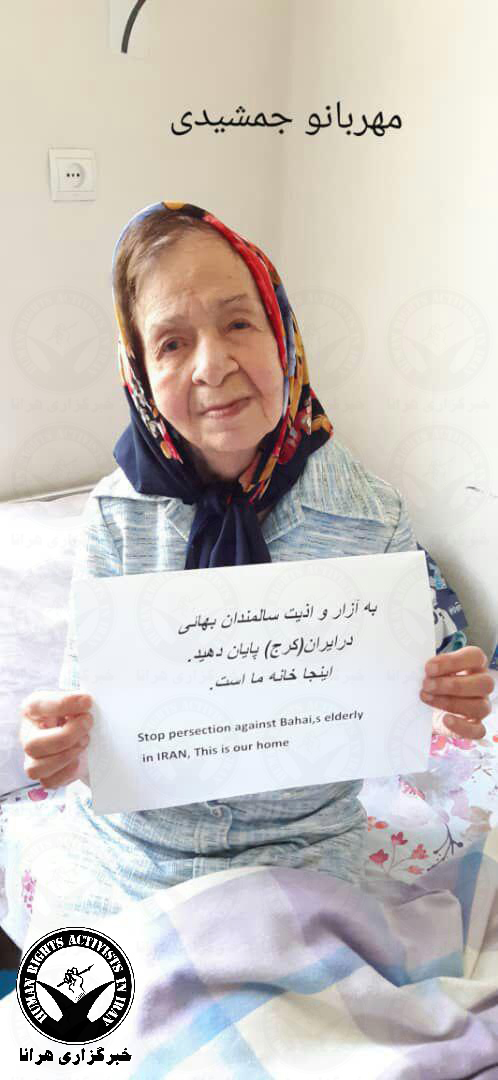 مهربانو جمشیدی
به آزار و اذیت سالمندان بهائی
درایران(کرج) پایان دهید.
اینجا خانه ما است.
Stop persection against Bahai,s elderly
in IRAN, This is our home
HUMAN RIGHTS ACTIVISTS IN IRAN
خبرگزاری هرانا